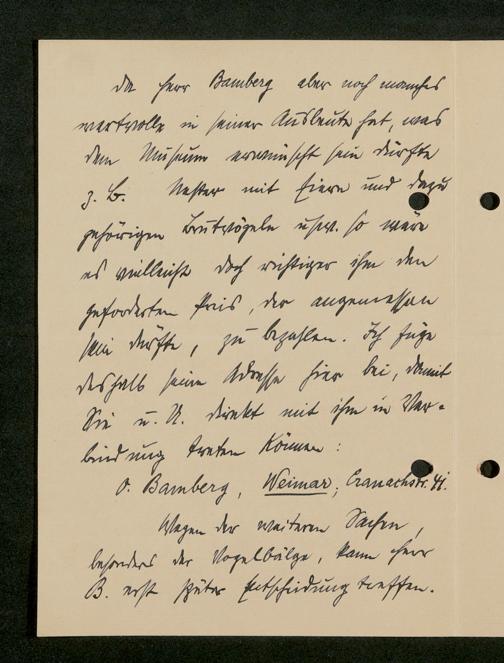 Da Herr Bamberg aber noch manches
wertvolle in seiner Ausbeute hat, was
dem Museum erwünscht sein dürfte
z. B. Nester mit Eiern und dazu
gehörigen Brutvögeln usw. so wäre
es vielleicht doch richtiger ihm den
geforderten Preis, der angemessen
sein dürfte, zu bezahlen. Ich füge
deshalb seine Adresse hier bei, damit
Sie u. U. direkt mit ihm in Ver-
bindung treten können:
O. Bamberg, Weimar, Cranachstr. 41.
Wegen der weiteren Sachen,
besonders der Vogelbälge, kann Herr
B. erst später Entscheidung treffen.